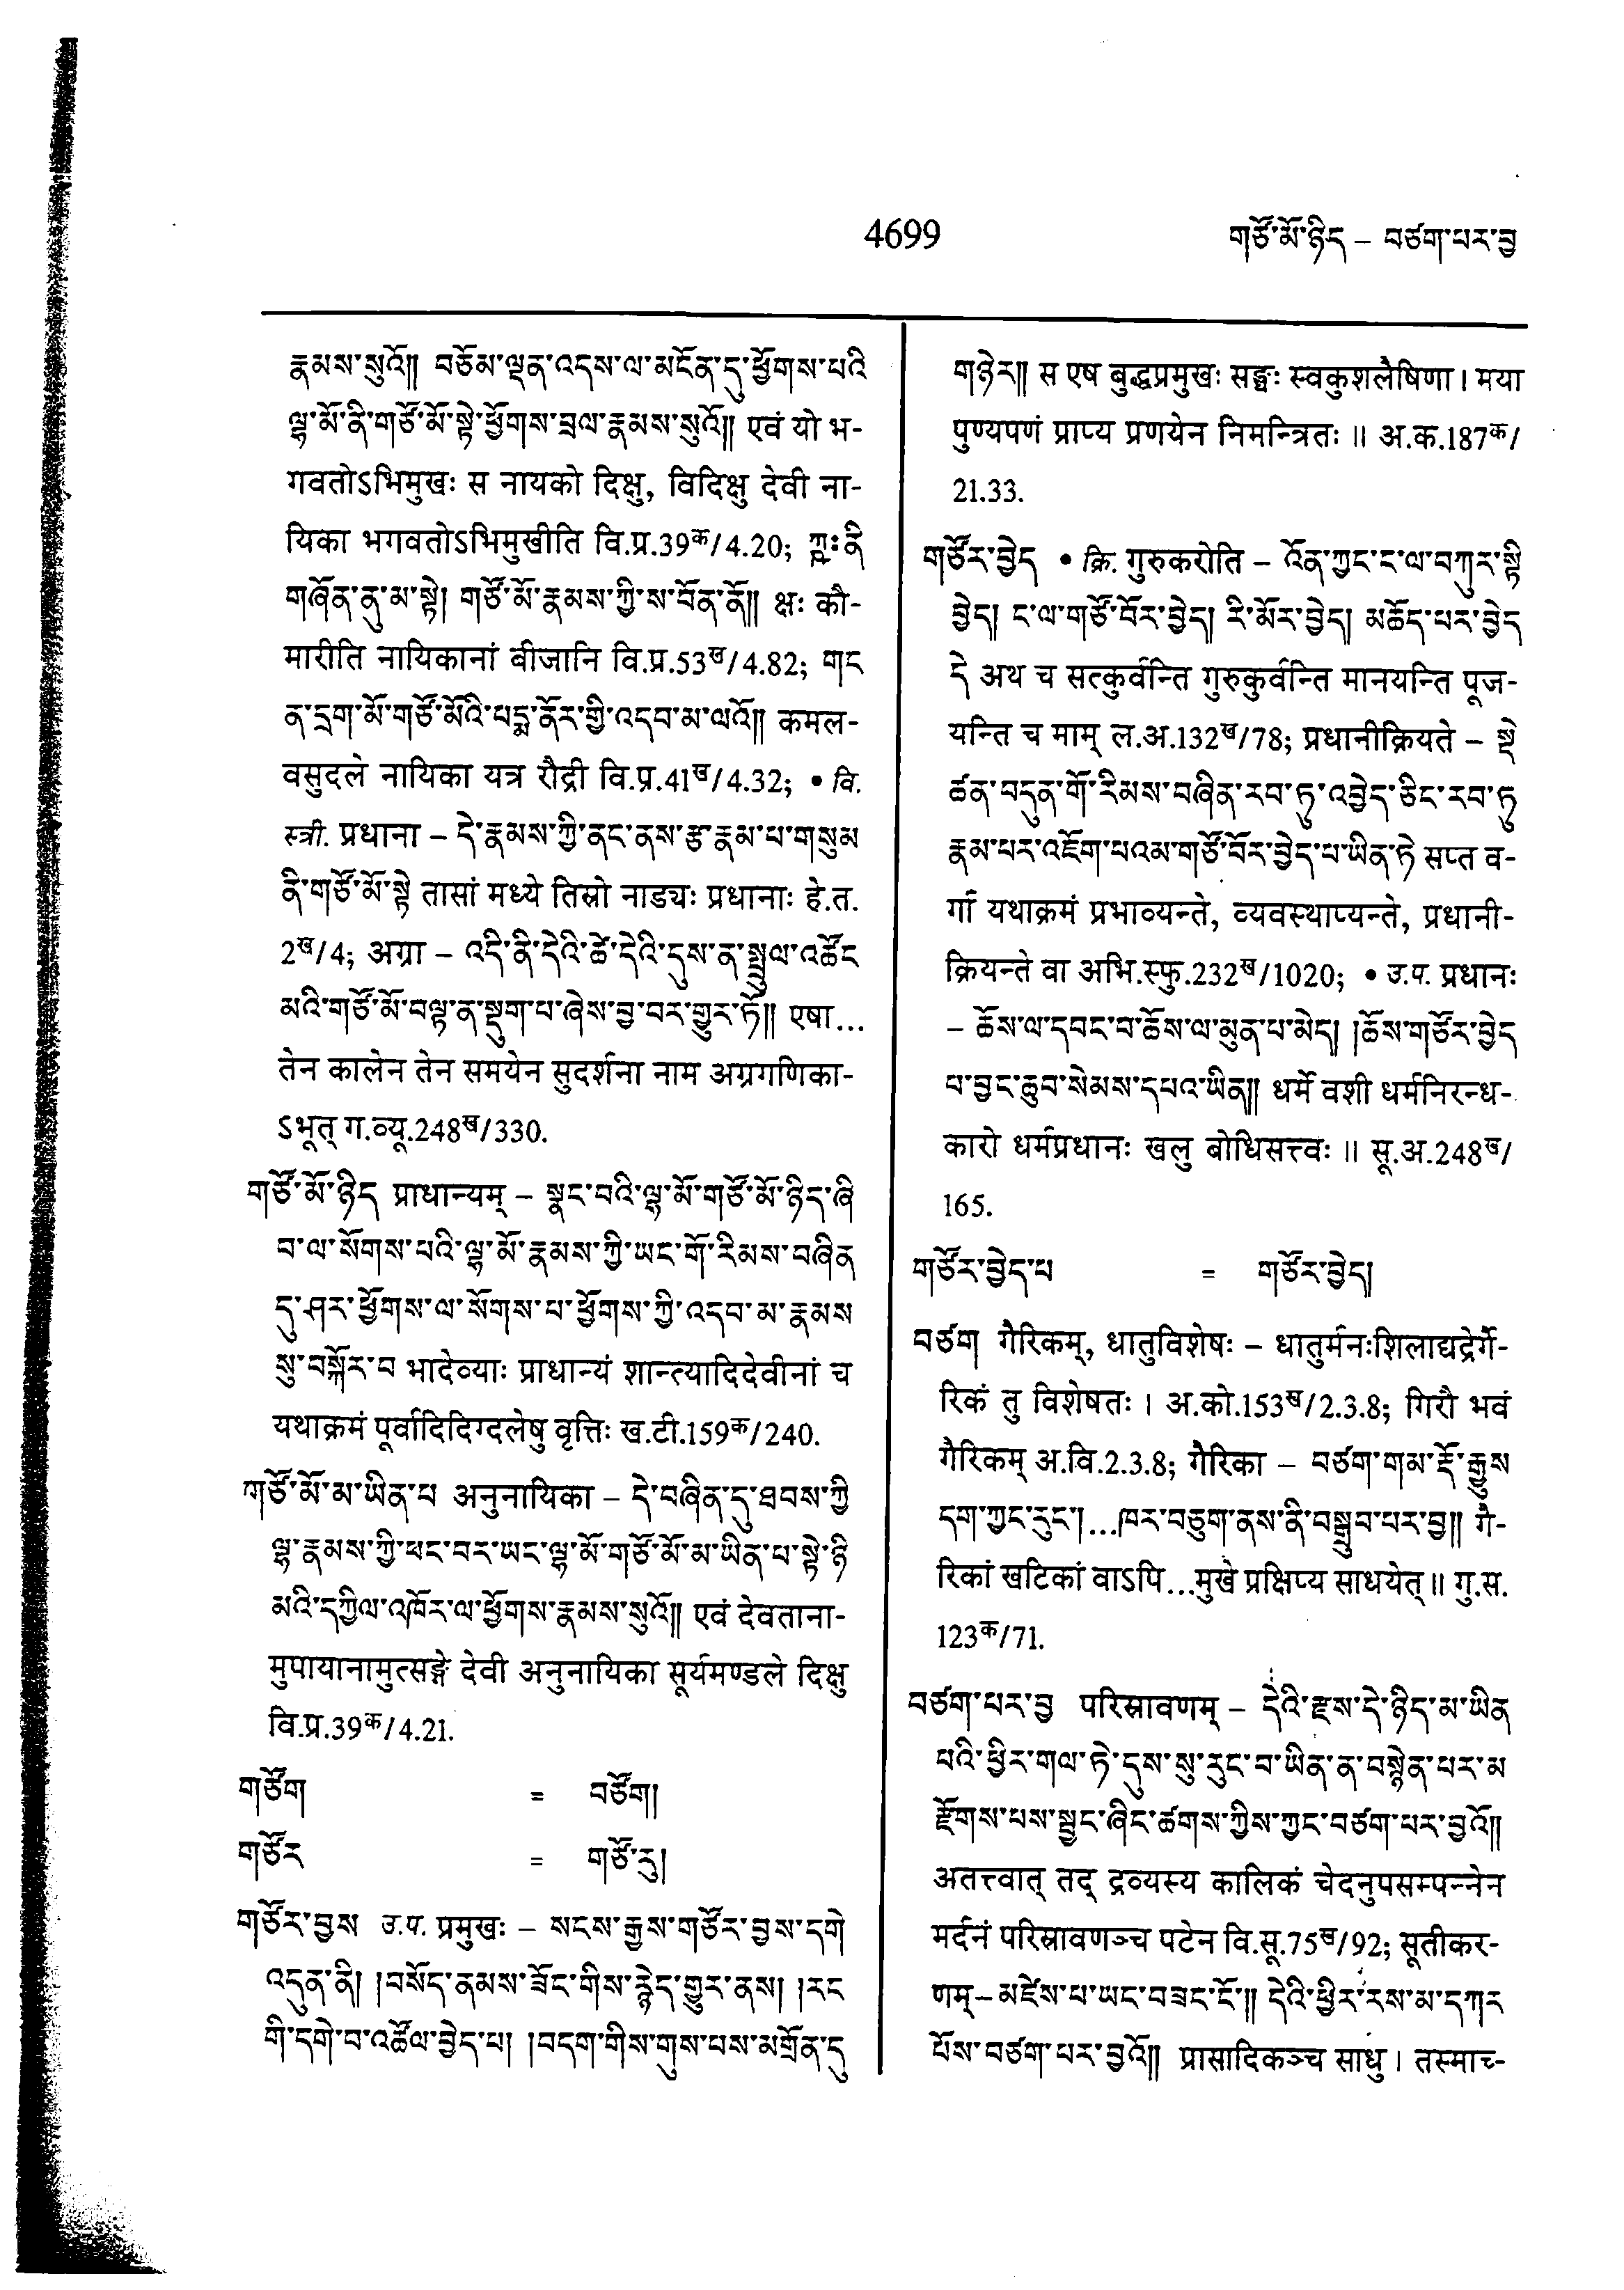 4699
གཙོ་མོ་ཉིད – བཙག་པར་བྱ
རྣམས་སུའོ།། བཅོམ་ལྡན་འདས་ལ་མངོན་དུ་ཕྱོགས་པའི
ལྷ་མོ་ནི་གཙོ་མོ་སྟེ་ཕྱོགས་བྲལ་རྣམས་སུའོ།། एवं यो भ-
गवतोऽभिमुखः स नायको दिक्षु, विदिक्षु देवी ना-
यिका भगवतोऽभिमुखीति वि.प्र.39क/4.20; ཀྵཿ་ནི
གཞོན་ནུ་མ་སྟེ། གཙོ་མོ་རྣམས་ཀྱི་ས་བོན་ནོ།། क्षः कौ-
मारीति नायिकानां बीजानि वि.प्र.53ख/4.82; གང
ན་དྲག་མོ་གཙོ་མོའི་པདྨ་ནོར་གྱི་འདབ་མ་ལའོ།། कमल-
वसुदले नायिका यत्र रौद्री वि.प्र.41ख/4.32; • वि.
स्त्री. प्रधाना – དེ་རྣམས་ཀྱི་ནང་ནས་རྩ་རྣམ་པ་གསུམ
ནི་གཙོ་མོ་སྟེ तासां मध्ये तिस्रो नाड्यः प्रधानाः हे.त.
2ख/4; अग्रा – འདི་ནི་དེའི་ཚེ་དེའི་དུས་ན་སྨྲལ་འཚོང
མའི་གཙོ་མོ་བལྟ་ན་སྡུག་པ་ཞེས་བྱ་བར་གྱུར་ཏོ།། एषा...
तेन कालेन तेन समयेन सुदर्शना नाम अग्रगणिका-
ऽभूत् ग.व्यू.248ख/330.
གཙོ་མོ་ཉིད प्राधान्यम् – སྣང་བའི་ལྷ་མོ་གཙོ་མོ་ཉིད་ཞི
བ་ལ་སོགས་པའི་ལྷ་མོ་རྣམས་ཀྱི་ཡང་གོ་རིམས་བཞིན
དུ་ཤར་ཕྱོགས་ལ་སོགས་པ་ཕྱོགས་ཀྱི་འདབ་མ་རྣམས
སུ་བསྐོར་བ भादेव्याः प्राधान्यं शान्त्यादिदेवीनां च
यथाक्रमं पूर्वादिदिग्दलेषु वृत्तिः ख.टी.159क/240.
གཙོ་མོ་མ་ཡིན་པ अनुनायिका – དེ་བཞིན་དུ་ཐབས་ཀྱི
ལྷ་རྣམས་ཀྱི་ཕང་བར་ཡང་ལྷ་མོ་གཙོ་མོ་མ་ཡིན་པ་སྟེ་ཉི
མའི་དཀྱིལ་འཁོར་ལ་ཕྱོགས་རྣམས་སུའོ།། एवं देवताना-
मुपायानामुत्सङ्गे देवी अनुनायिका सूर्यमण्डले दिक्षु
वि.प्र.39क/4.21.
གཙོག = བཙོག།
གཙོར = གཙོ་རུ།
གཙོར་བྱས उ.प. प्रमुखः – སངས་རྒྱས་གཙོར་བྱས་དགེ
འདུན་ནི། །བསོད་ནམས་ཟོང་གིས་རྙེད་གྱུར་ནས། །རང
གི་དགེ་བ་འཚོལ་བྱེད་པ། །བདག་གིས་གུས་པས་མགྲོན་དུ
གཉེར།། स एष बुद्धप्रमुखः सङ्घः स्वकुशलैषिणा। मया
पुण्यपणं प्राप्य प्रणयेन निमन्त्रितः॥ अ.क.187क/
21.33.
གཙོར་བྱེད • क्रि. गुरुकरोति – འོན་ཀྱང་ང་ལ་བཀུར་སྟི
བྱེད། ང་ལ་གཙོ་བོར་བྱེད། རི་མོར་བྱེད། མཆོད་པར་བྱེད
དེ अथ च सत्कुर्वन्ति गुरुकुर्वन्ति मानयन्ति पूज-
यन्ति च माम् ल.अ.132ख/78; प्रधानीक्रियते – སྡེ
ཚན་བདུན་གོ་རིམས་བཞིན་རབ་ཏུ་འབྱེད་ཅིང་རབ་ཏུ
རྣམ་པར་འཇོག་པའམ་གཙོ་བོར་བྱེད་པ་ཡིན་ཏེ सप्त व-
र्गा यथाक्रमं प्रभाव्यन्ते, व्यवस्थाप्यन्ते, प्रधानी-
क्रियन्ते वा अभि.स्फु.232ख/1020; • उ.प. प्रधानः
– ཆོས་ལ་དབང་བ་ཆོས་ལ་མུན་པ་མེད། །ཆོས་གཙོར་བྱེད
པ་བྱང་ཆུབ་སེམས་དཔའ་ཡིན།། धर्मे वशी धर्मनिरन्ध-
कारो धर्मप्रधानः खलु बोधिसत्त्वः॥ सू.अ.248ख/
165.
གཙོར་བྱེད་པ = གཙོར་བྱེད།
བཙག गैरिकम्, धातुविशेषः – धातुर्मनःशिलाद्यद्रेर्गै-
रिकं तु विशेषतः। अ.को.153ख/2.3.8; गिरौ भवं
गैरिकम् अ.वि.2.3.8; गैरिका – བཙག་གམ་རྡོ་རྒྱུས
དག་ཀྱང་རུང་།...ཁར་བཅུག་ནས་ནི་བསྒྲུབ་པར་བྱ།། गै-
रिकां खटिकां वाऽपि...मुखे प्रक्षिप्य साधयेत्॥ गु.स.
123क/71.
བཙག་པར་བྱ परिस्रावणम् – དེའི་རྫས་དེ་ཉིད་མ་ཡིན
པའི་ཕྱིར་གལ་ཏེ་དུས་སུ་རུང་བ་ཡིན་ན་བསྙེན་པར་མ
རྫོགས་པས་སྦྱང་ཞིང་ཚགས་ཀྱིས་ཀྱང་བཙག་པར་བྱའོ།།
अतत्त्वात् तद् द्रव्यस्य कालिकं चेदनुपसम्पन्नेन
मर्दनं परिस्रावणञ्च पटेन वि.सू.75ख/92; सूतीकर-
णम् – མཛེས་པ་ཡང་བཟང་ངོ་།། དེའི་ཕྱིར་རས་མ་དཀར
པོས་བཙག་པར་བྱའོ།། प्रासादिकञ्च साधु। तस्माच्-